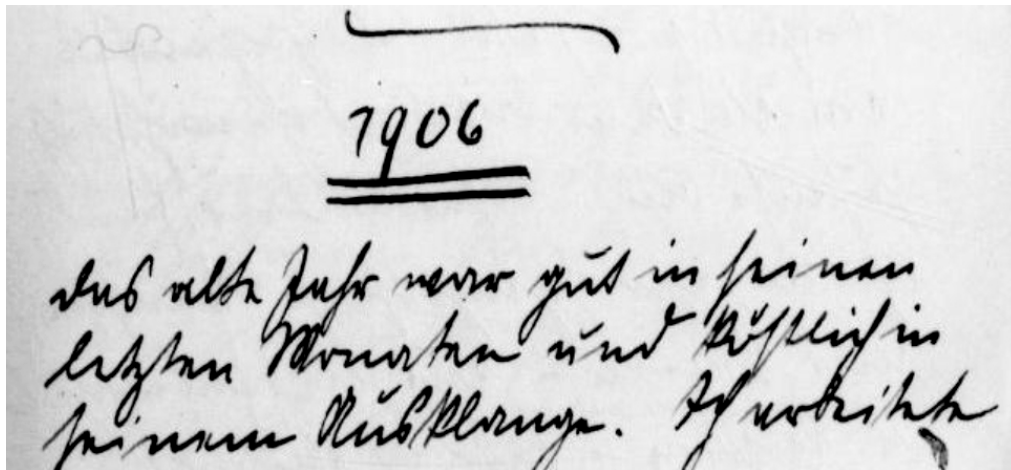 1906
das alte Jahr war gut in seinen
letzten Monaten und köstlich in
seinem Ausklange. Ich arbeitete